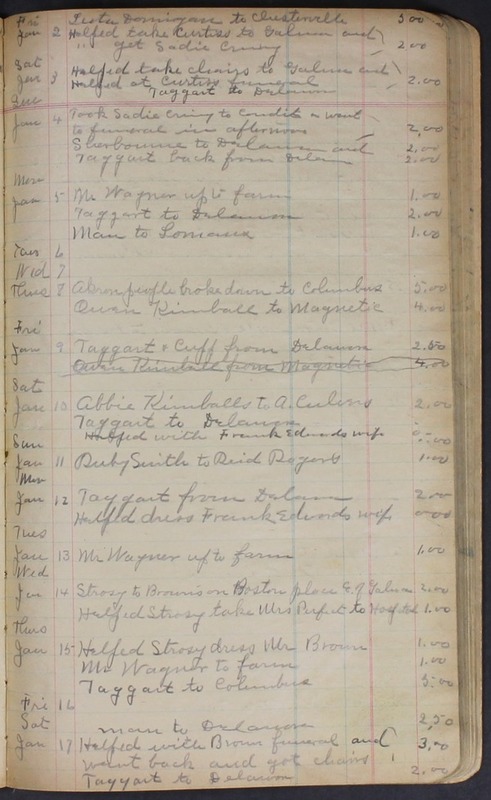 Fri Lester Dominigan to Chesterville 5 00
Jan 2 Helped take Curtiss to Galena and
" get Sadie Criney 2 00
Sat
Jan 3 Helped take chairs to Galena and
Helped at Curtiss funeral 2.00
Taggart to Delawon
Sun
Jan 4 Took Sadie Criney to Condits & went
to funeral in afternoon 2,00
Sherbourne to Delawon and 2,00
Taggart back from Delawon 2.00
Mon
Jan 5 Mr Wagner up to farm 1.00
Taggart to Delawon 2.00
Man to Lomaux 1.00
Tues 6
Wed 7
Thurs 8 Akron people broke down to Columbus 5.00
Owen Kimball to Magnetic 4.00
Fri
Jan 9 Taggart & Cuff from Delawon 2.50
Owen Kimball from Magnetic 4.00
Sat
Jan 10 Abbie Kimballs to A. Culvers 2.00
Taggart to Delawon
Helped with Frank Edwards wife
Sun
Jan 11 Ruby Smith to Reid Rogers 1.00
Mon
Jan 12 Taggart from Delawon 2.00
Helped dress Frank Edwards wife 0 00
Tues
Jan 13 Mr Wagner up to farm 1.00
Wed
Jan 14 Strosy to Browns on Boston place E. of Galena 2.00
Helped Strosy take Mrs Perfect to Hospital 1.00
Thurs
Jan 15 Helped Strosy dress Mr Brown 1.00
Mr Wagner to farm 1.00
Taggart to Columbus 5.00
Fri 16
Sat man to Delawon 2,50
Jan 17 Helped with Brown funeral and 3,00
went back and got chairs
Taggart to Delawon 2.00